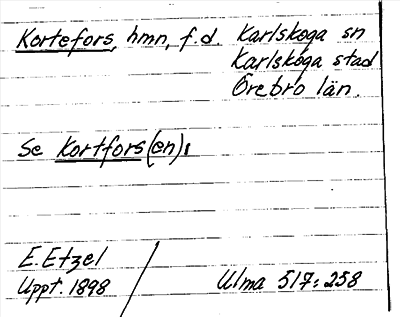 Kortefors, hmn, f.d. Karlskoga sn
Karlskoga stad
Örebro län.
Se Kortfors(en):
E. Etzel
Uppt. 1898
Ulma 517:258